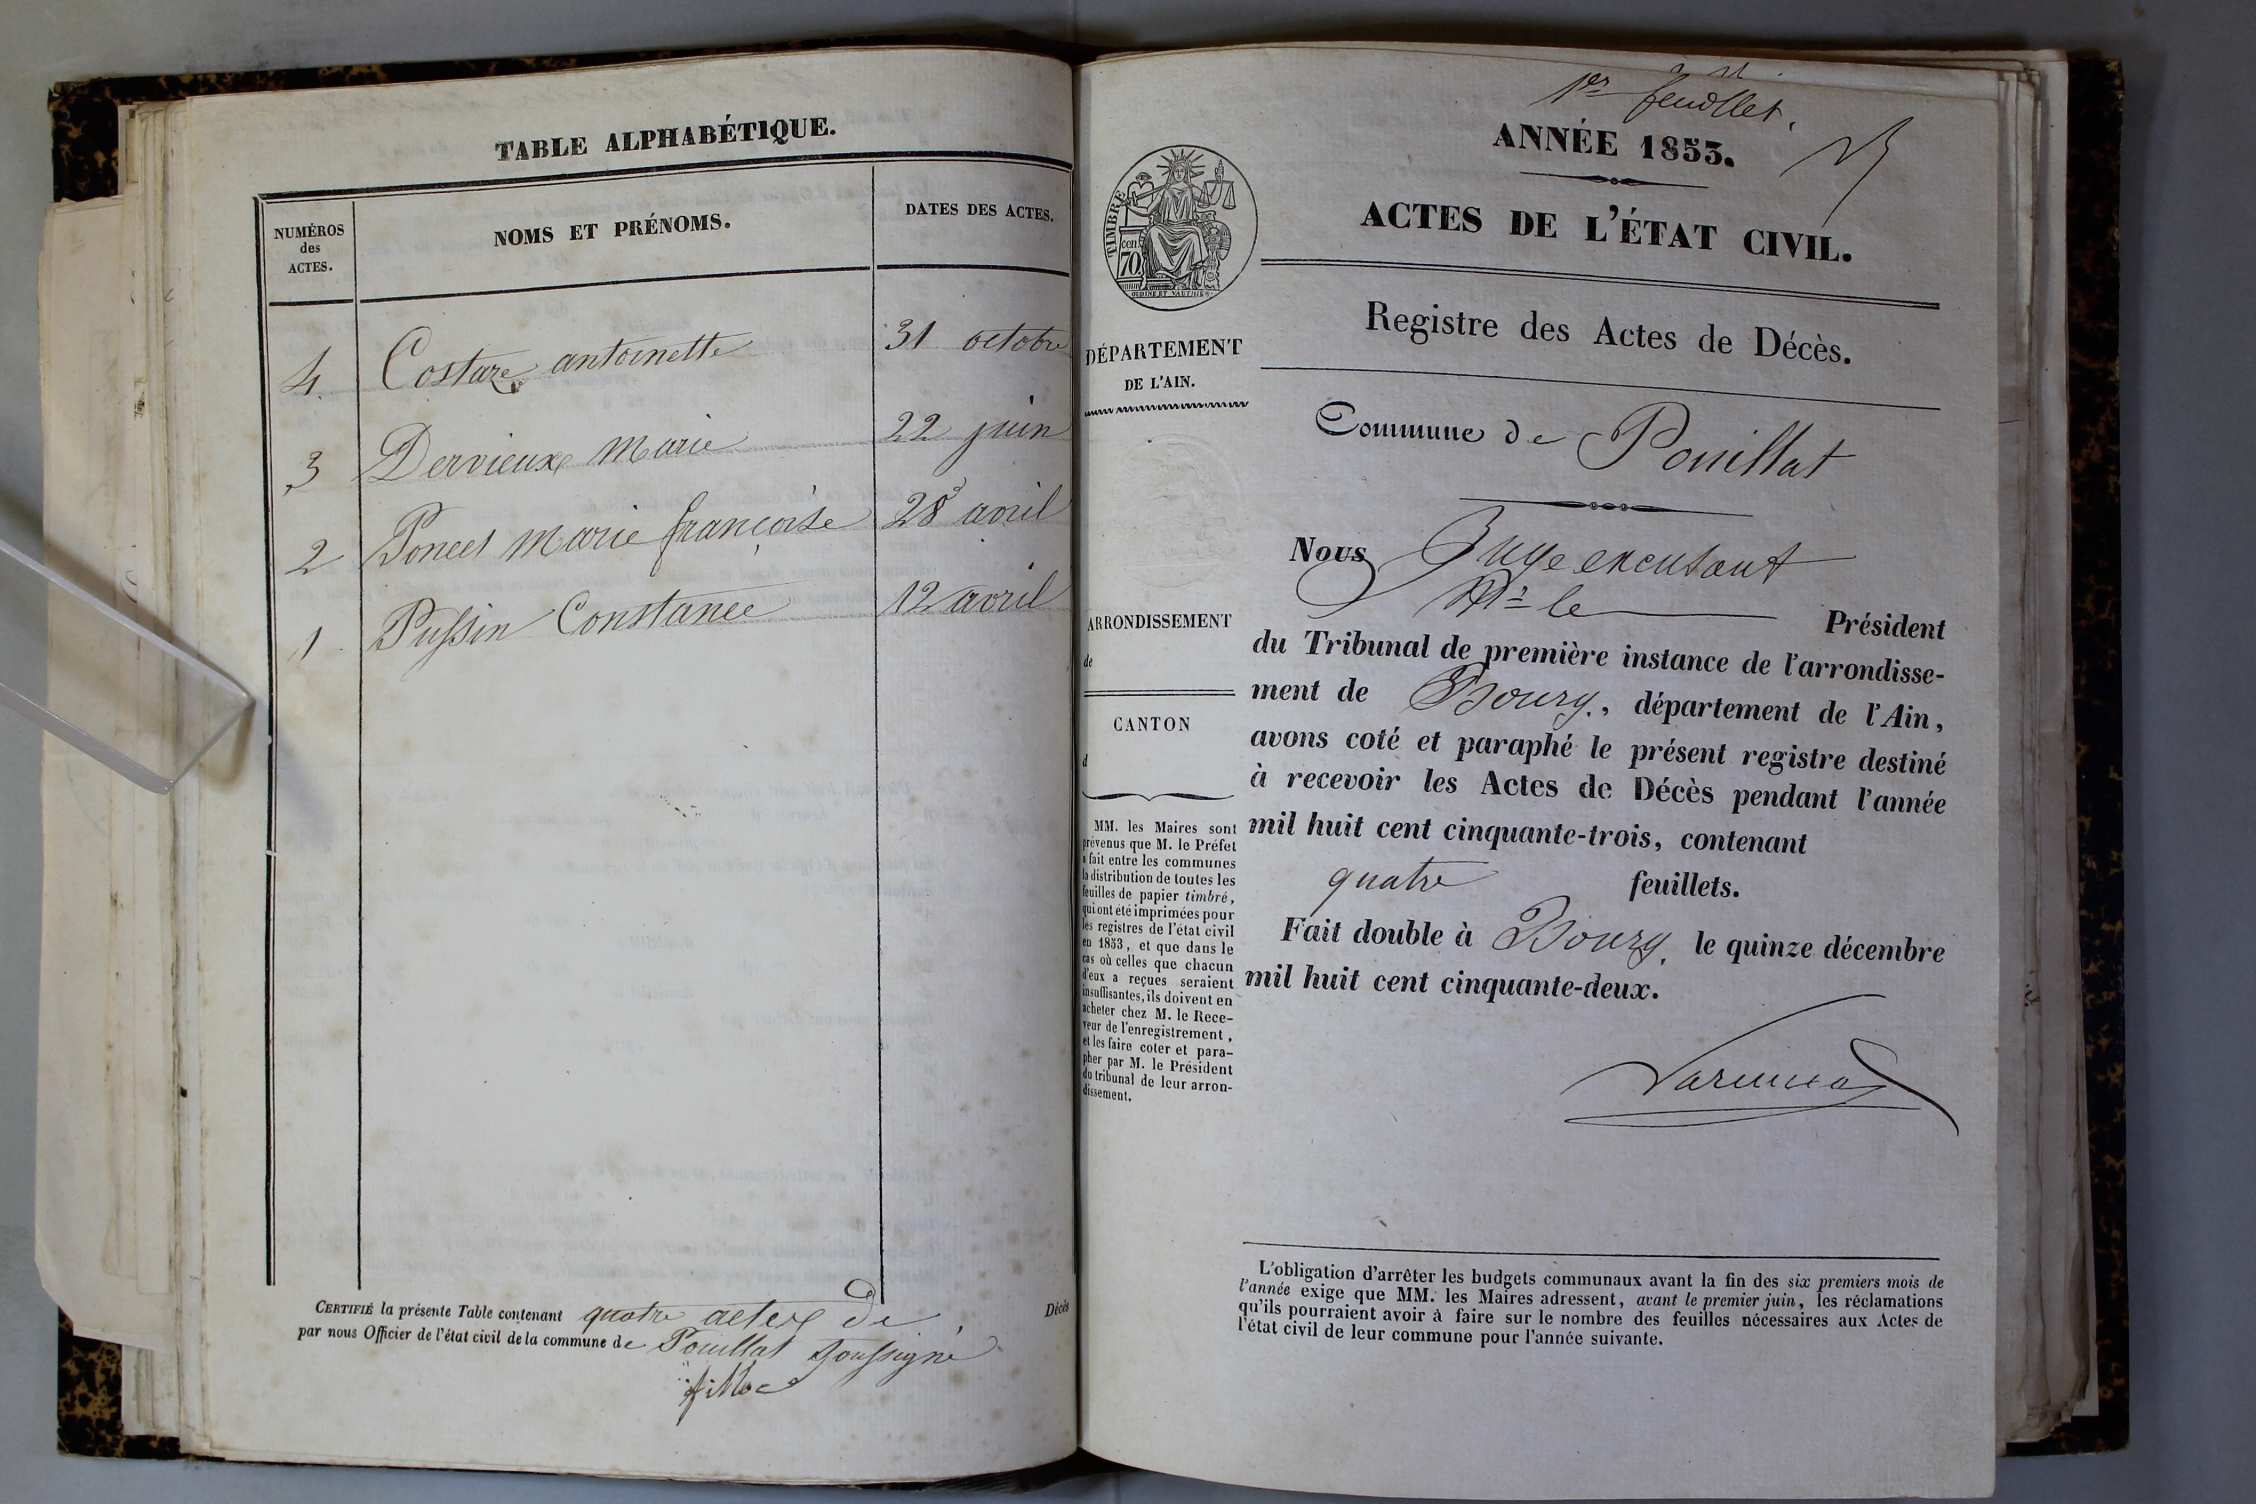 TABLE ALPHABÉTIQUE.
NUMÉROS
des
ACTES.
NOMS ET PRÉNOMS.
DATES DES ACTES.
4. Costaze antoinette 31 octobre
3 Dervieux Marie 22 juin
2 Poncet Marie françoise 28 avril
1 Pussin Constance 12 avril
CERTIFIÉ la présente Table contenant quatre actes de Décès
par nous Officier de l'état civil de la commune de Pouillat soussigné
1er feuillet.
ANNÉE 1853.
ACTES DE L'ÉTAT CIVIL.
TIMBRE
cen
70
DÉPARTEMENT
DE L'AIN.
Registre des Actes de Décès.
Commune de Pouillat
Nous Juge excusant
Mr le Président
du Tribunal de première instance de l'arrondisse-
ment de Bourg, département de l'Ain,
avons coté et paraphé le présent registre destiné
à recevoir les Actes de Décès pendant l'année
mil huit cent cinquante-trois, contenant
quatre feuillets.
Fait double à Bourg, le quinze décembre
mil huit cent cinquante-deux.
ARRONDISSEMENT
de
CANTON
d
MM. les Maires sont
prévenus que M. le Préfet
a fait entre les communes
la distribution de toutes les
feuilles de papier timbré,
qui ont été imprimées pour
les registres de l'état civil
en 1853, et que dans le
cas où celles que chacun
d'eux a reçues seraient
insuffisantes, ils doivent en
acheter chez M. le Rece-
veur de l'enregistrement,
et les faire coter et para-
pher par M. le Président
du tribunal de leur arron-
dissement.
L'obligation d'arrêter les budgets communaux avant la fin des six premiers mois de
l'année exige que MM. les Maires adressent, avant le premier juin, les réclamations
qu'ils pourraient avoir à faire sur le nombre des feuilles nécessaires aux Actes de
l'état civil de leur commune pour l'année suivante.